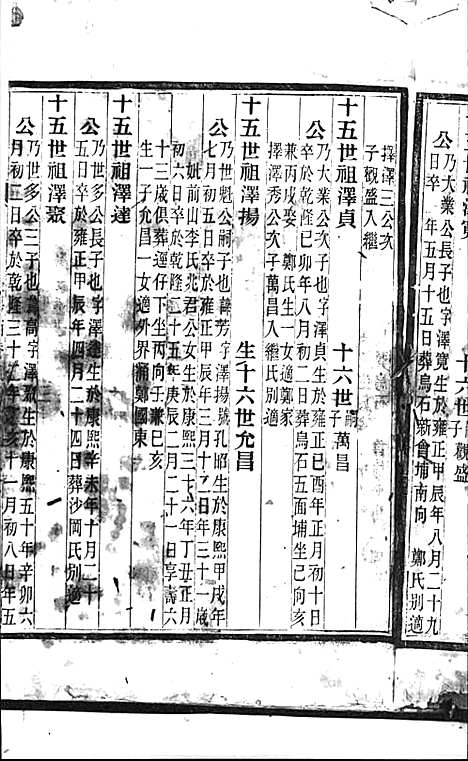 公乃大業公次子也字澤寬生於雍正甲辰年八月二十九
日卒　年五月十五日葬烏石新會埔南向　鄭氏別適
十六世　觀盛
擇澤三公次
子觀盛入繼
十五世祖澤貞　十六世嗣子萬昌
公乃大業公次子也字澤貞生於雍正己酉年正月初十日
卒於乾隆己卯年八月初二日葬烏石五面埔坐已向亥
兼丙戌娶　鄭氏生一女適鄭家
擇澤秀公次子萬昌入繼氏別適
十五世祖澤揚　生十六世允昌
公乃世魁公嗣子也諱芳字澤揚號孔昭生於康熙甲戌年
七月初五日卒於雍正甲辰年三月十二日年三十一歲
妣前山李氏北君公女生於康熙三十六年丁丑正月
初六日卒於乾隆二十五年庚辰二月二十一日享壽六
十三歲俱葬運仔下坐丙向壬兼巳亥
生一子允昌一女適外界鄭國東
十五世祖澤達
公乃世多公長子也字澤達生於康熙辛未年十月二十
五日卒於雍正甲辰年四月二十四日葬沙岡氏別適
十五世祖澤聚
公乃世多公三子也 高字澤聚生於康熙五十年辛卯六
月初三日卒於乾隆三十 年 亥十一月初八日年五